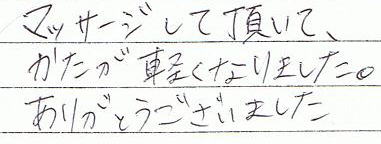 マッサージして頂いて、
かたが軽くなりました。
ありがとうございました